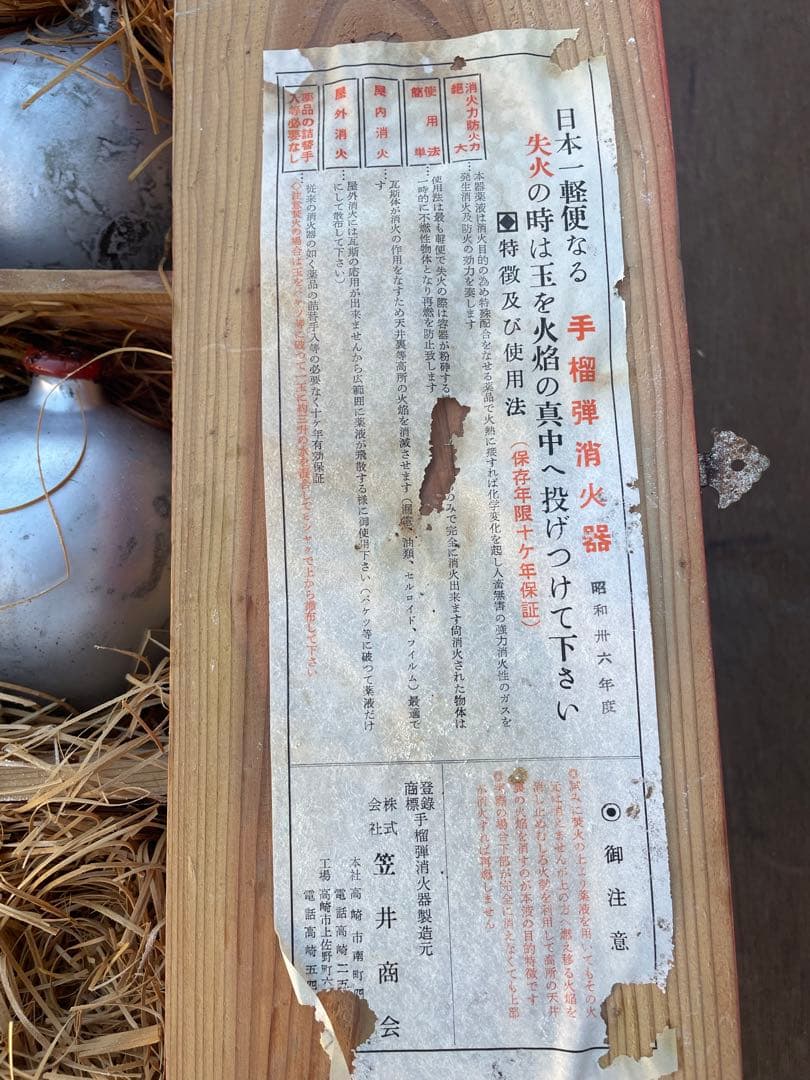 日本一軽便なる 手榴弾消火器 昭和卅六年度
失火の時は玉を火焔の真中へ投げつけて下さい
特徴及び使用法 (保存年限十ケ年保証)
消火力防火力絶大
本器薬液は消火目的の為め特殊配合をなせる薬品で火熱に接すれば化学変化を起し人畜無害の強力消火性のガスを
発生消火及防火の効力を奏します
使用法簡単
使用法は最も軽便で失火の際は容器が粉砕する のみで完全に消火出来ます尚消火された物体は
一時的に不燃性物体となり再燃を防止致します
屋内消火
瓦斯体が消火の作用をなすため天井裏等高所の火焔を消滅させます(漏電、油類、セルロイド、フイルム)最適で
す
屋外消火
屋外消火には瓦斯の応用が出来ませんから広範囲に薬液が飛散する様に御使用下さい(バケツ等に破つて薬液だけ
にして散布して下さい)
薬品の詰替手入等必要なし
従来の消火器の如く薬品の詰替手入等の必要なく十ケ年有効保証
◇注意焚火の場合は玉をバケツ等に破つて一玉に約三升の水を混合してヒシヤクで上から散布して下さい
御注意
試みに焚火の上より薬液を用いてもその火
元は消えませんが上の方へ燃え移る火焔を
消し止めむしろ火勢を利用して高所の天井
裏の火焔を消すのが本液の目的特徴です
実際の場合下部が完全に消えなくても上部
が消火すれば再燃しません
登録商標手榴弾消火器製造元
株式会社 笠井商会
本社 高崎市南町四
電話高崎二五
工場 高崎市上佐野町六
電話高崎五四